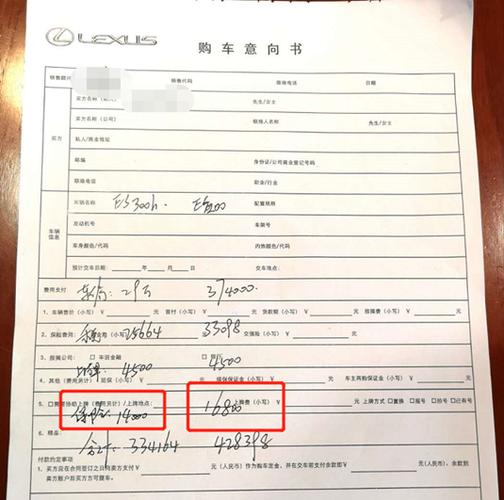 LEXUS 购车意向书
销售顾问 销售代码 联络电话 日期
买方
买方名称(私人) 先生/女士
买方名称(公司) 联络人名称 先生/女士
私人/商业地址
邮编 身份证/公司商业登记号码
联络电话 职业/行业
车辆信息
车辆名称 ES300h 配置规格
发动机号 车架号
车身颜色/代码 内饰颜色/代码
预计交车日期 年 月 日 交车地点:
费用支付 29万 374000.
1. 车辆售价(小写) ¥ 元 首付(小写) ¥ 元 贷款额(小写) ¥ 元 按揭费(小写) ¥ 元
2. 保险费用: (小写) 25664 33098 交强险(小写) ¥ 元
3. 按揭公司: □ 车田金融 □ 银行
4500 4500
4. 其他(费用另计)□延保(小写) ¥ 元 续保保证金(小写) ¥ 元 车主再购保证金(小写) ¥ 元
5. □需要协助上牌(费用另计)/上牌地点: 上牌费(小写) ¥ 元 上牌方式 □置换 □报号 □已有号
14000 16800
6. 精品:
合计 334164 428398
付款约定事项
1. 买方应在合同签订之日向卖方支付¥ 元(人民币)作为购车定金,并在交车前支付余款¥ 元(人民币)
卖方账户后买方方可提车.